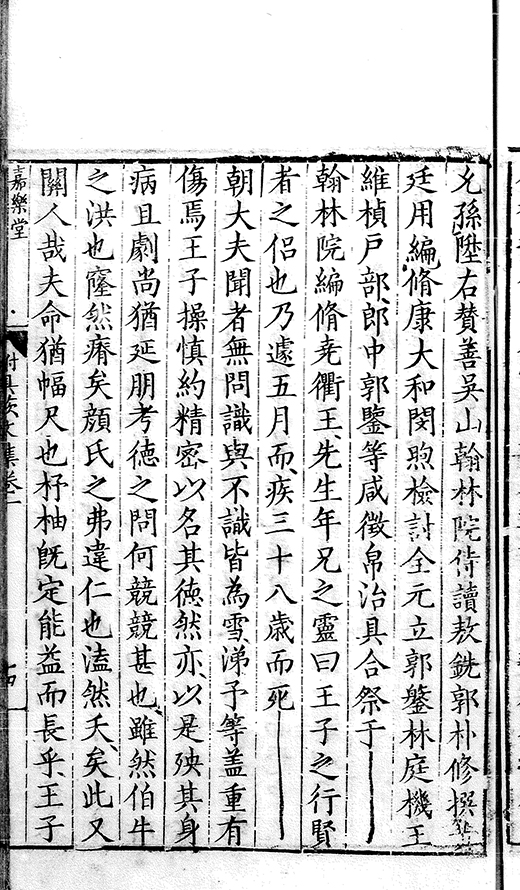 允孫陞右賛善吳山翰林院侍讀敖銑郭朴修撰
廷用編脩康大和閔煦檢討全元立郭鑋林庭機王
維楨戶部郎中郭鑒等咸徵帛治具合祭于
翰林院編脩堯衢王先生年兄之靈曰王子之行賢
者之侣也乃遽五月而疾三十八歳而死
朝大夫聞者無問識與不識皆為雪涕予等盖重有
傷焉王子操慎約精密以名其徳然亦以是殃其身
病且劇尚猶延朋考徳之問何競競甚也雖然伯牛
之洪也窿然瘠矣顔氏之弗違仁也溘然夭矣此又
關人哉夫命猶幅尺也杼柚旣定能益而長乎王子
嘉樂堂
集卷一
十四